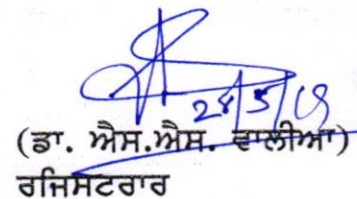 24/5/19
(ਡਾ. ਐਸ.ਐਸ. ਵਾਲੀਆ)
ਰਜਿਸਟਰਾਰ